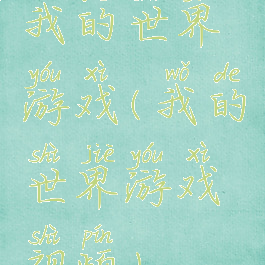 我的世界
yóu xì wǒ de
游戏(我的
shì jiè yóu xì
世界游戏
shì pín
视频)